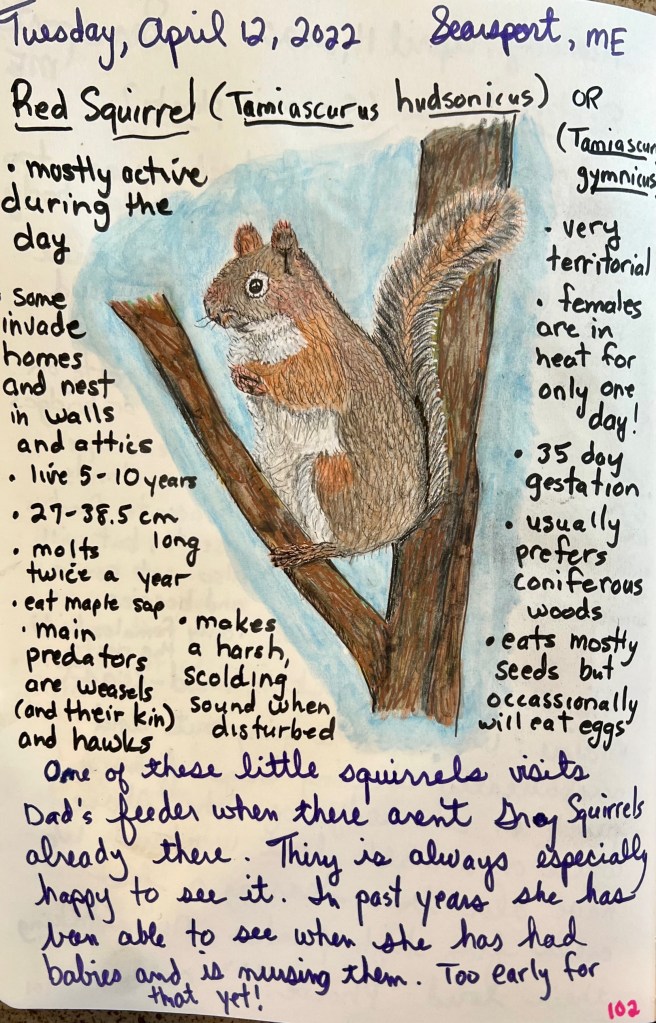 Tuesday, April 12, 2022 Searsport, ME
Red Squirrel (Tamiascurus hudsonicus) OR
(Tamiascur
gymnicus)
• mostly active
during the
day
• some
invade
homes
and nest
in walls
and attics
• live 5-10 years
• 27-38.5 cm
long
• molts
twice a year
• eat maple sap
• main
predators
are weasels
(and their kin)
and hawks
• makes
a harsh,
scolding
sound when
disturbed
• very
territorial
• females
are in
heat for
only one
day!
• 35 day
gestation
• usually
prefers
coniferous
woods
• eats mostly
seeds but
occassionally
will eat eggs
One of these little squirrels visits
Dad's feeder when there aren't Gray Squirrels
already there. Thiry is always especially
happy to see it. In past years she has
been able to see when she has had
babies and is nursing them. Too early for
that yet!
102